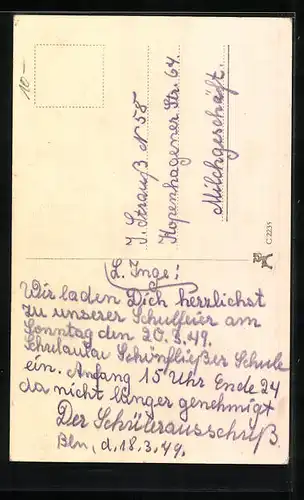 10-
I. Strauß N 58
Kopenhagener Str. 64
Milchgeschäft.
C 2235
L. Inge!
Wir laden Dich herzlichst
zu unserer Schulfeier am
Sonntag den 20.3.49.
Schönfließer Schule
ein. Anfang 15 Uhr Ende 24
da nicht länger genehmigt
Der Schülerausschuß
Bln, d. 18.3.49.